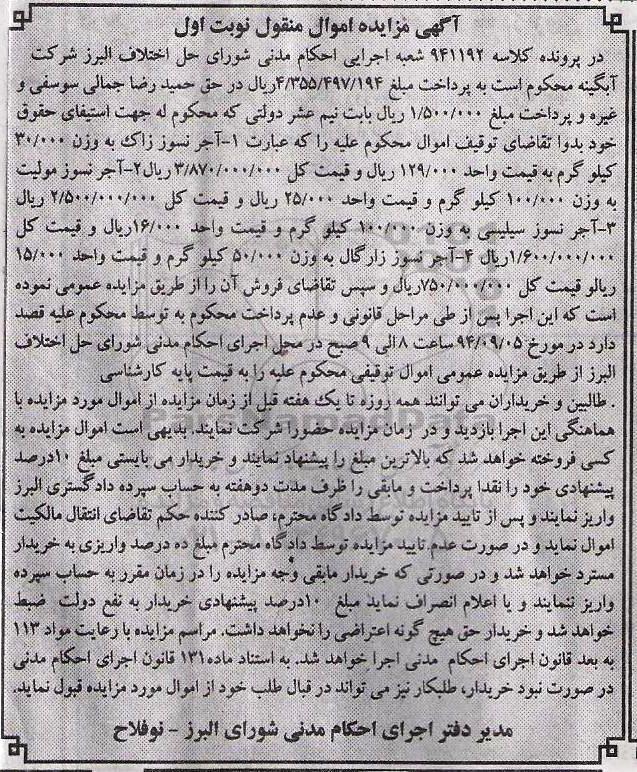 آگهی مزایده اموال منقول نوبت اول
در پرونده کلاسه ۹۴۱۱۹۲ شعبه اجرایی احکام مدنی شورای حل اختلاف البرز شرکت
آبگینه محکوم است به پرداخت مبلغ ۴/۳۵۵/۴۹۷/۱۹۴ریال در حق حمید رضا جمالی سوسفی و
غیره و پرداخت مبلغ ۱/۵۰۰/۰۰۰ ریال بابت نیم عشر دولتی که محکوم له جهت استیفای حقوق
خود بدوا تقاضای توقیف اموال محکوم علیه را که عبارت ۱-آجر نسوز زاک به وزن ۳۰/۰۰۰
کیلو گرم به قیمت واحد ۱۲۹/۰۰۰ ریال و قیمت کل ۳/۸۷۰/۰۰۰/۰۰۰ ریال۲-آجر نسوز مولیت
به وزن ۱۰۰/۰۰۰ کیلو گرم و قیمت واحد ۲۵/۰۰۰ ریال و قیمت کل ۲/۵۰۰/۰۰۰/۰۰۰ ریال
۳-آجر نسوز سیلیسی به وزن ۱۰۰/۰۰۰ کیلو گرم و قیمت واحد ۱۶/۰۰۰ریال و قیمت کل
۱/۶۰۰/۰۰۰/۰۰۰ریال ۴-آجر نسوز زارگال به وزن ۵۰/۰۰۰ کیلو گرم و قیمت واحد ۱۵/۰۰۰
ریالو قیمت کل ۷۵۰/۰۰۰/۰۰۰ریال و سپس تقاضای فروش آن را از طریق مزایده عمومی نموده
است که این اجرا پس از طی مراحل قانونی و عدم پرداخت محکوم به توسط محکوم علیه قصد
دارد در مورخ ۹۴/۰۹/۰۵ ساعت ۸ الی ۹ صبح در محل اجرای احکام مدنی شورای حل اختلاف
البرز از طریق مزایده عمومی اموال توقیفی محکوم علیه را به قیمت پایه کارشناسی
. طالبین و خریداران می توانند همه روزه تا یک هفته قبل از زمان مزایده از اموال مورد مزایده با
هماهنگی این اجرا بازدید و در زمان مزایده حضورا شرکت نمایند. بدیهی است اموال مزایده به
کسی فروخته خواهد شد که بالاترین مبلغ را پیشنهاد نمایند و خریدار می بایستی مبلغ ۱۰درصد
پیشنهادی خود را نقدا پرداخت و مابقی را ظرف مدت دوهفته به حساب سپرده دادگستری البرز
واریز نمایند و پس از تایید مزایده توسط دادگاه محترم، صادر کننده حکم تقاضای انتقال مالکیت
اموال نماید و در صورت عدم تایید مزایده توسط دادگاه محترم مبلغ ده درصد واریزی به خریدار
مسترد خواهد شد و در صورتی که خریدار مابقی وجه مزایده را در زمان مقرر به حساب سپرده
واریز ننمایند و یا اعلام انصراف نماید مبلغ ۱۰درصد پیشنهادی خریدار به نفع دولت ضبط
خواهد شد و خریدار حق هیچ گونه اعتراضی را نخواهد داشت. مراسم مزایده با رعایت مواد ۱۱۳
به بعد قانون اجرای احکام مدنی اجرا خواهد شد. به استناد ماده۱۳۱ قانون اجرای احکام مدنی
در صورت نبود خریدار، طلبکار نیز می تواند در قبال طلب خود از اموال مورد مزایده قبول نماید.
مدیر دفتر اجرای احکام مدنی شورای البرز - نوفلاح